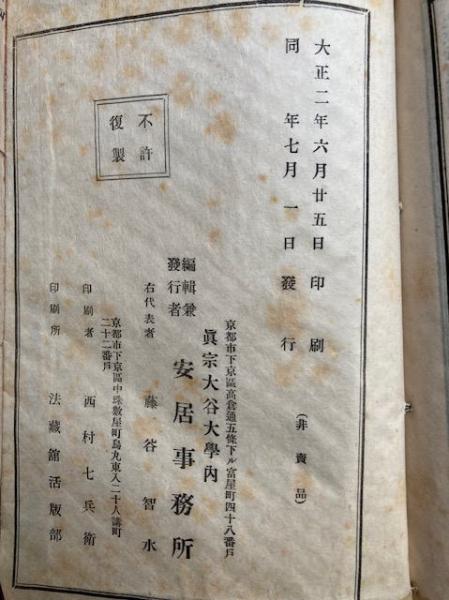 大正二年六月廿五日印刷
同年七月一日發行
(非賣品)
不許
復製
京都市下京區高倉通五條下ル富屋町四十八番戶
眞宗大谷大學內
編輯兼
發行者
安居事務所
右代表者 藤谷智水
京都市下京區中珠數屋町烏丸東入二十人講町
二十二番戶
印刷者 西村七兵衛
印刷所 法藏館活版部